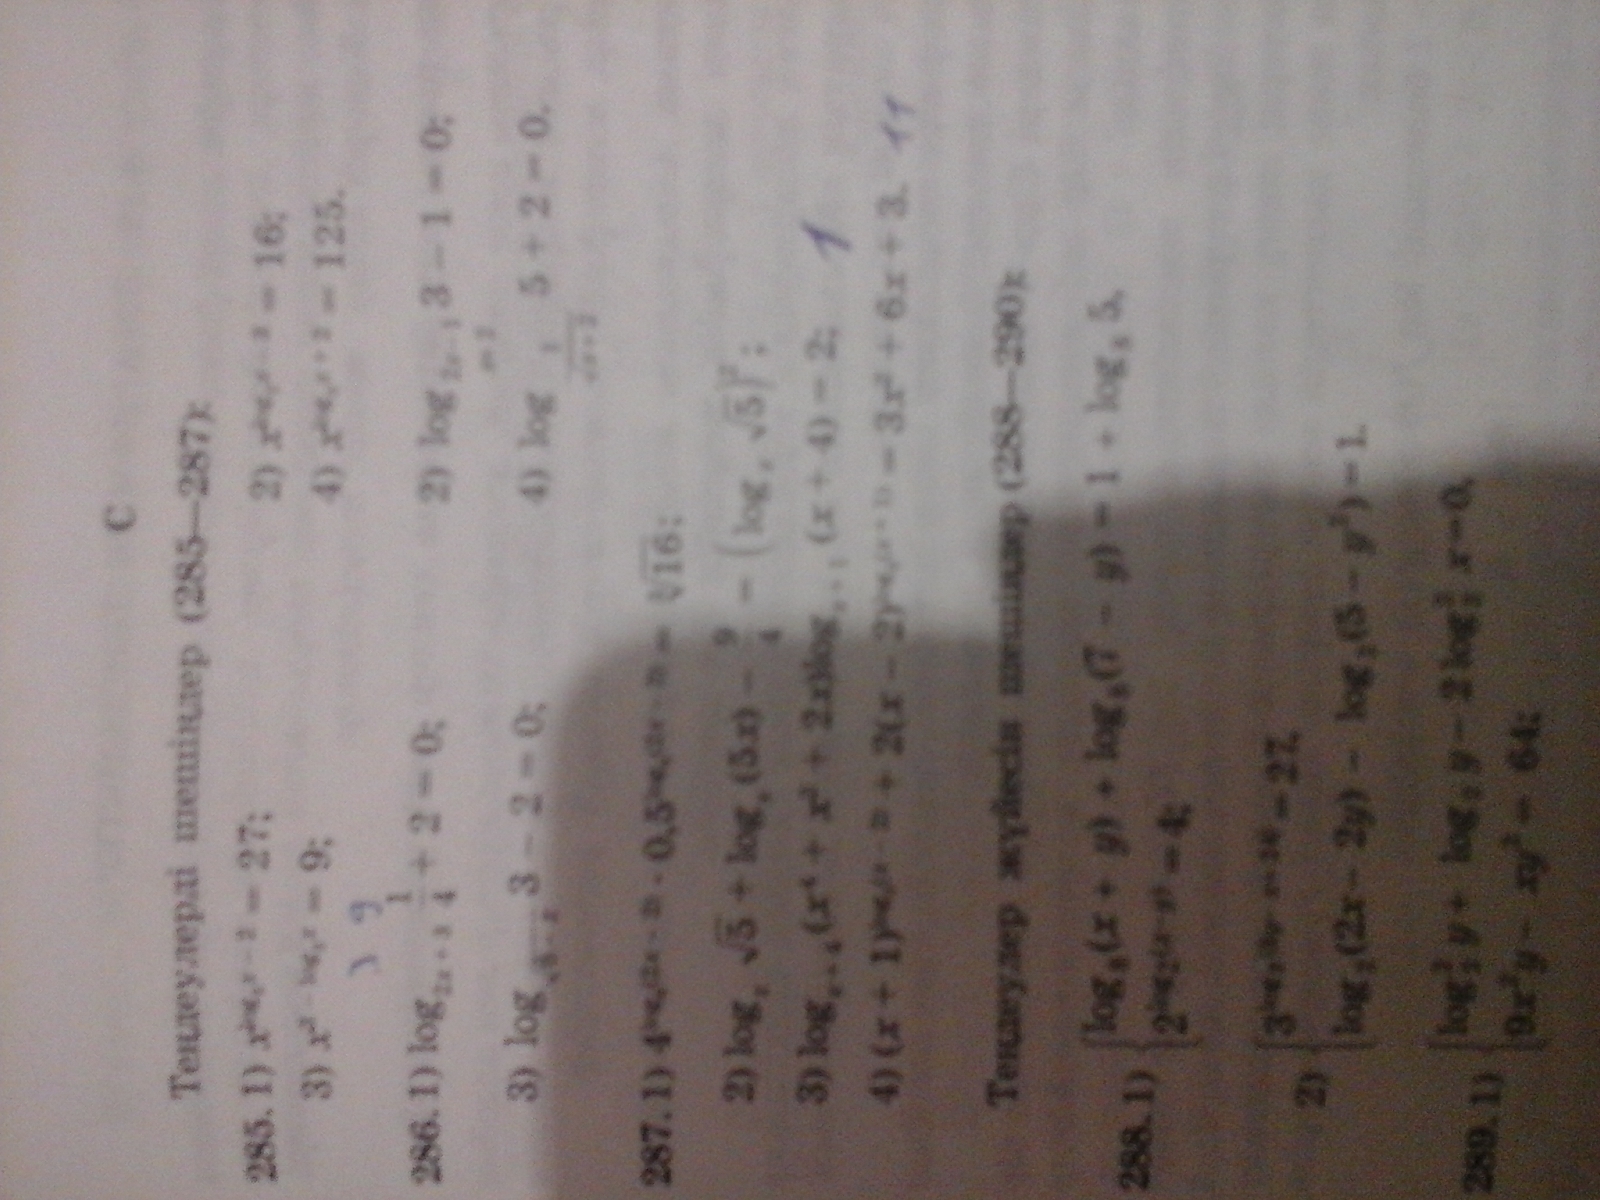 C
Теңдеулерді шешіңдер (285—287):
285. 1) x^{log_3 x − 2} = 27; 2) x^{log_2 x − 3} = 16;
3) x^{2 − log_3 x} = 9; 4) x^{log_5 x + 2} = 125.
9
286. 1) log_{2x + 3} 1/4 + 2 = 0; 2) log 3 − 1 = 0;
3) log 3 − 2 = 0; 4) log 5 + 2 = 0.
287. 1) 4 · 0,5 = 16;
2) log_x √5 + log_x (5x) − 9/4 = (log_x √5)^2;
3) log_{x+4} (x + 2x) log_{x+1} (x + 4) = 2; 1
4) (x + 1) + 2(x − 2) = 3x^2 + 6x + 3. 11
Теңдеулер жүйесін шешіңдер (288—290):
288. 1) { log (x + y) + log (7 − y) = 1 + log 5,
2 = 4;
2) { 3 = 27,
log_3 (2x − 2y) − log_3 (5 − y^2) = 1.
289. 1) { log_2^2 y + log_2 y − 2 log_2^2 x = 0,
9x^2 y − xy^2 = 64;